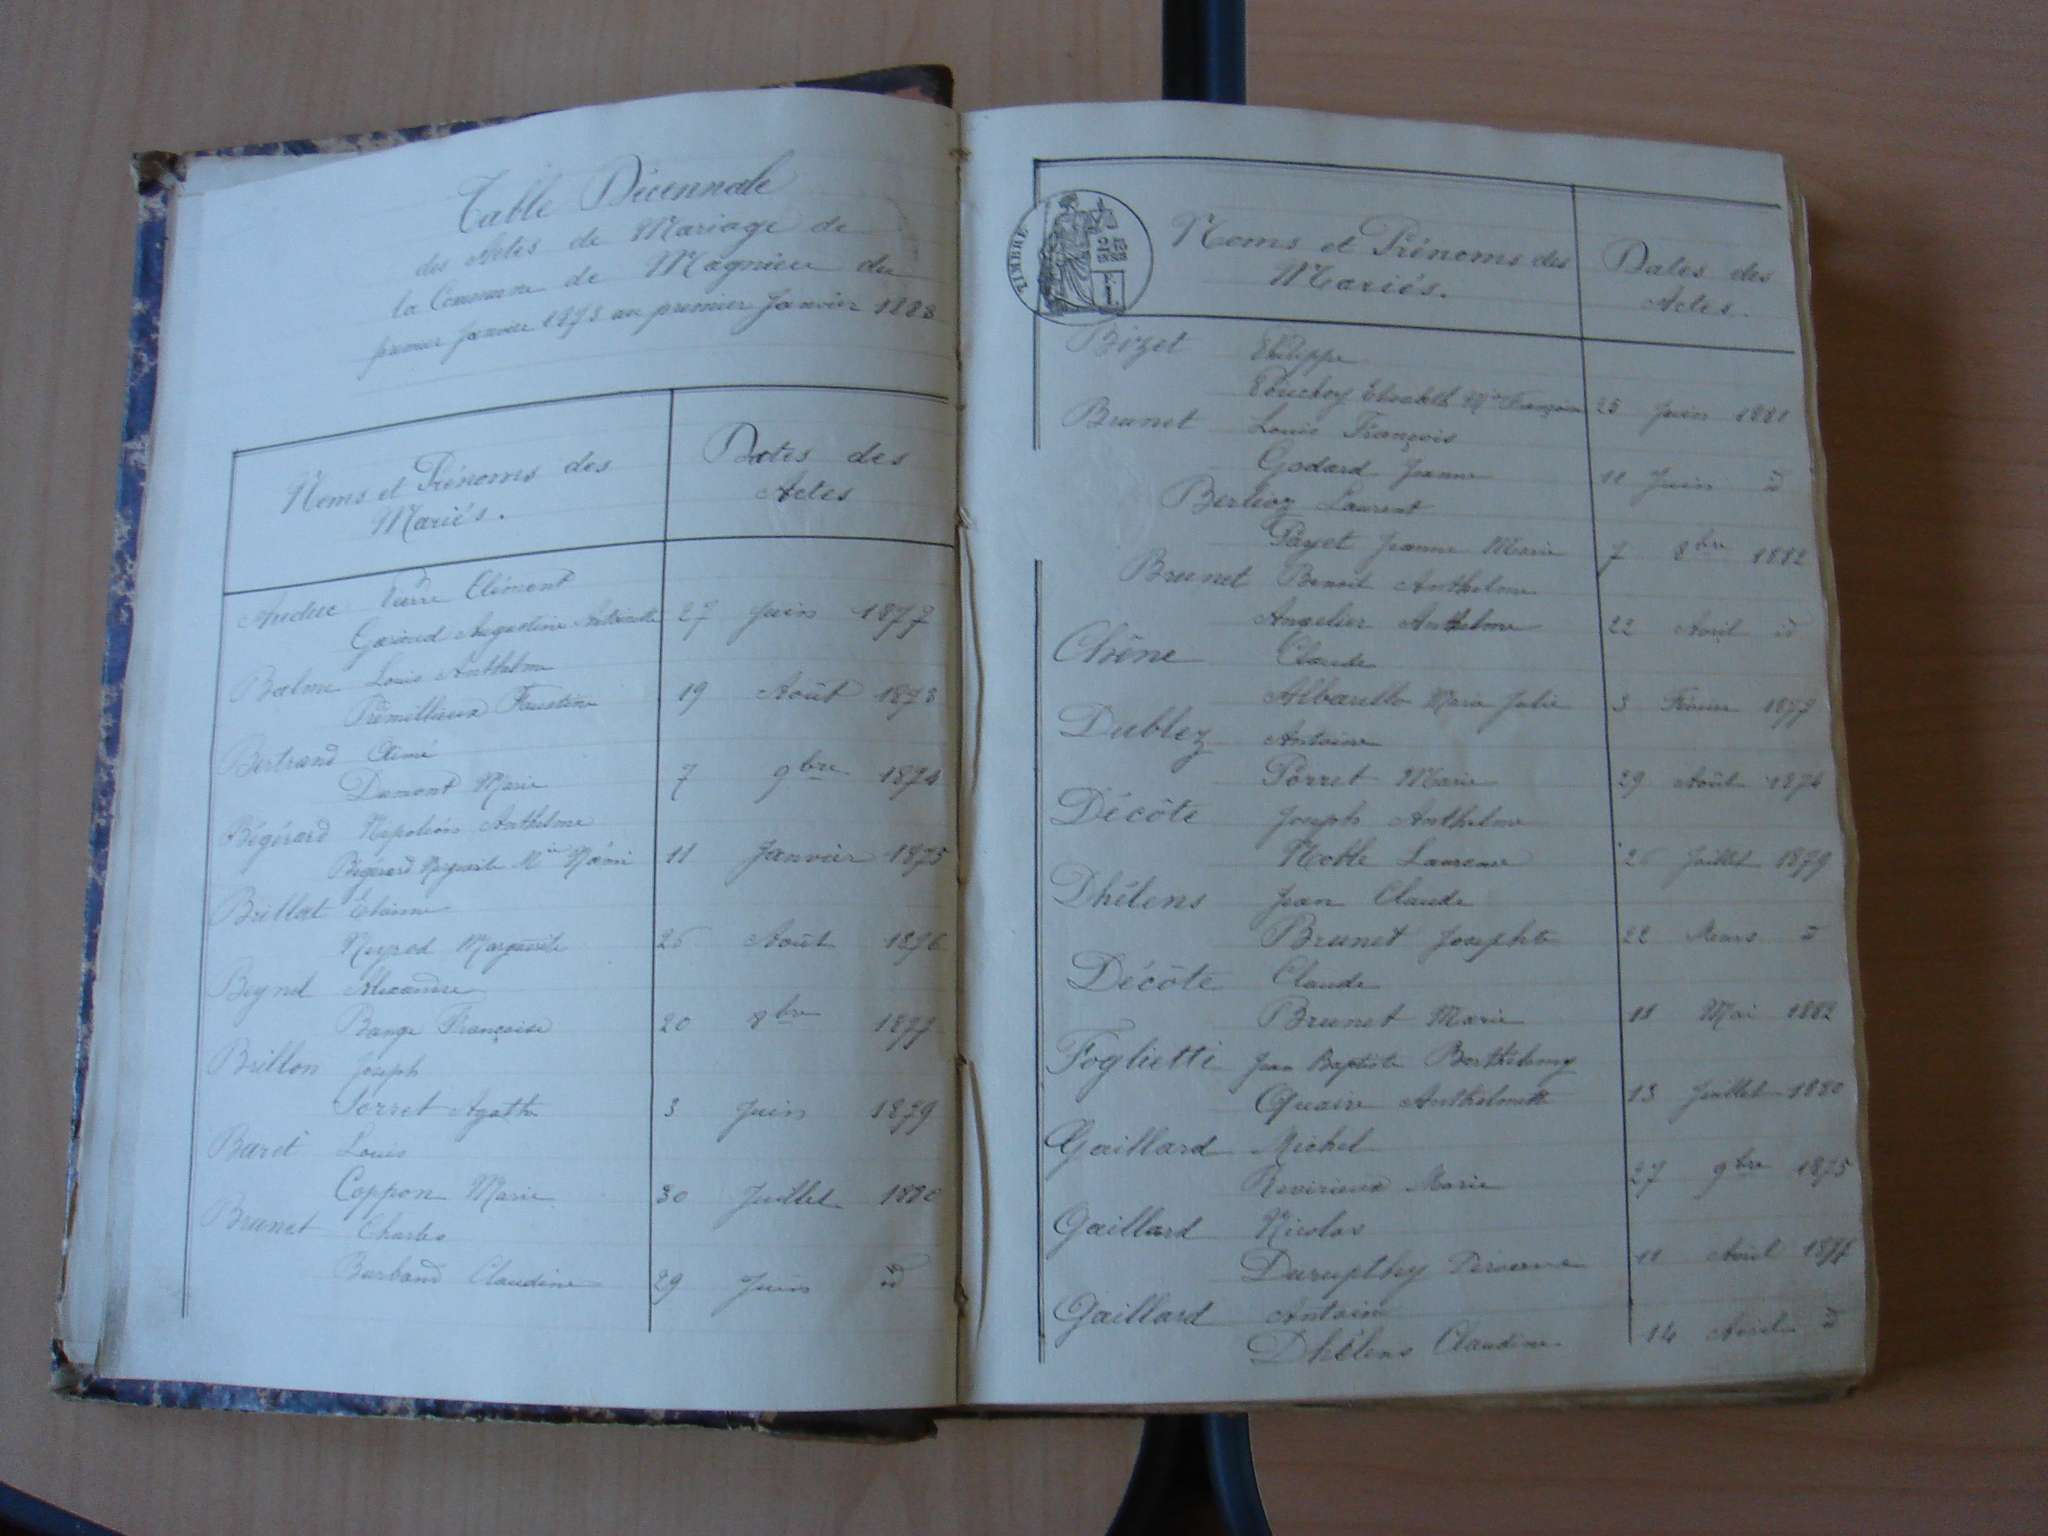 Table Décennale
des Actes de Mariage de
la Commune de Magnieu du
premier Janvier 1873 au premier Janvier 1883
Noms et Prénoms des
Mariés.
Dates des
Actes
Pierre Clément
Augustine Antoinette 27 Juin 1877
Balme Louis Anthelme
Prémillieux Faustine 19 Août 1873
Bertrand Aimé
Dumont Marie 7 9bre 1874
Bégérard Napoléon Anthelme
Bégérard Mie 11 Janvier 1875
Brillat Etienne
Neyrod Marguerite 26 Août 1876
Beynet Alexandre
Bange Françoise 20 8bre 1877
Brillon Joseph
Porret Agathe 3 Juin 1879
Baret Louis
Coppon Marie 30 Juillet 1880
Brunet Charles
Burband Claudine 29 Juin id
TIMBRE
Noms et Prénoms des
Mariés.
Dates des
Actes.
Bizet Philippe
Elisabeth Mie Françoise 25 Juin 1881
Brunet Louis François
Godard Jeanne 11 Juin id
Berlioz Laurent
Payet Jeanne Marie 7 8bre 1882
Brunet Benoit Anthelme
Ancelier Anthelme 22 Avril id
Chêne Claude
Albarello Marie Julie 3 Février 1877
Dublez Antoine
Porret Marie 29 Août 1874
Décôte Joseph Anthelme
Noble Laurence 26 Juillet 1879
Dhélens Jean Claude
Brunet Josephte 22 Mars id
Décôte Claude
Brunet Marie 11 Mai 1882
Foglietti Jean Baptiste Barthélemy
Quaire Anthelmette 13 Juillet 1880
Gaillard Michel
Revirieux Marie 27 9bre 1875
Gaillard Nicolas
Durupthy 11 Août
Gaillard Antoine
Dhélens Claudine 14 Avril id